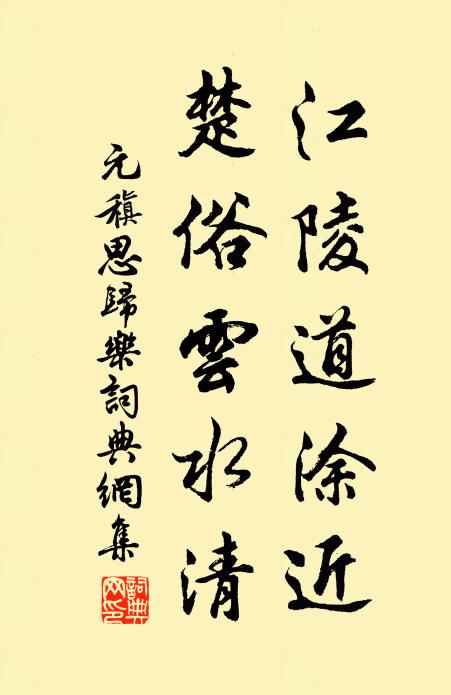 江陵道涂近
楚俗雲水清
元稹思歸樂詞典網集
詞典網印